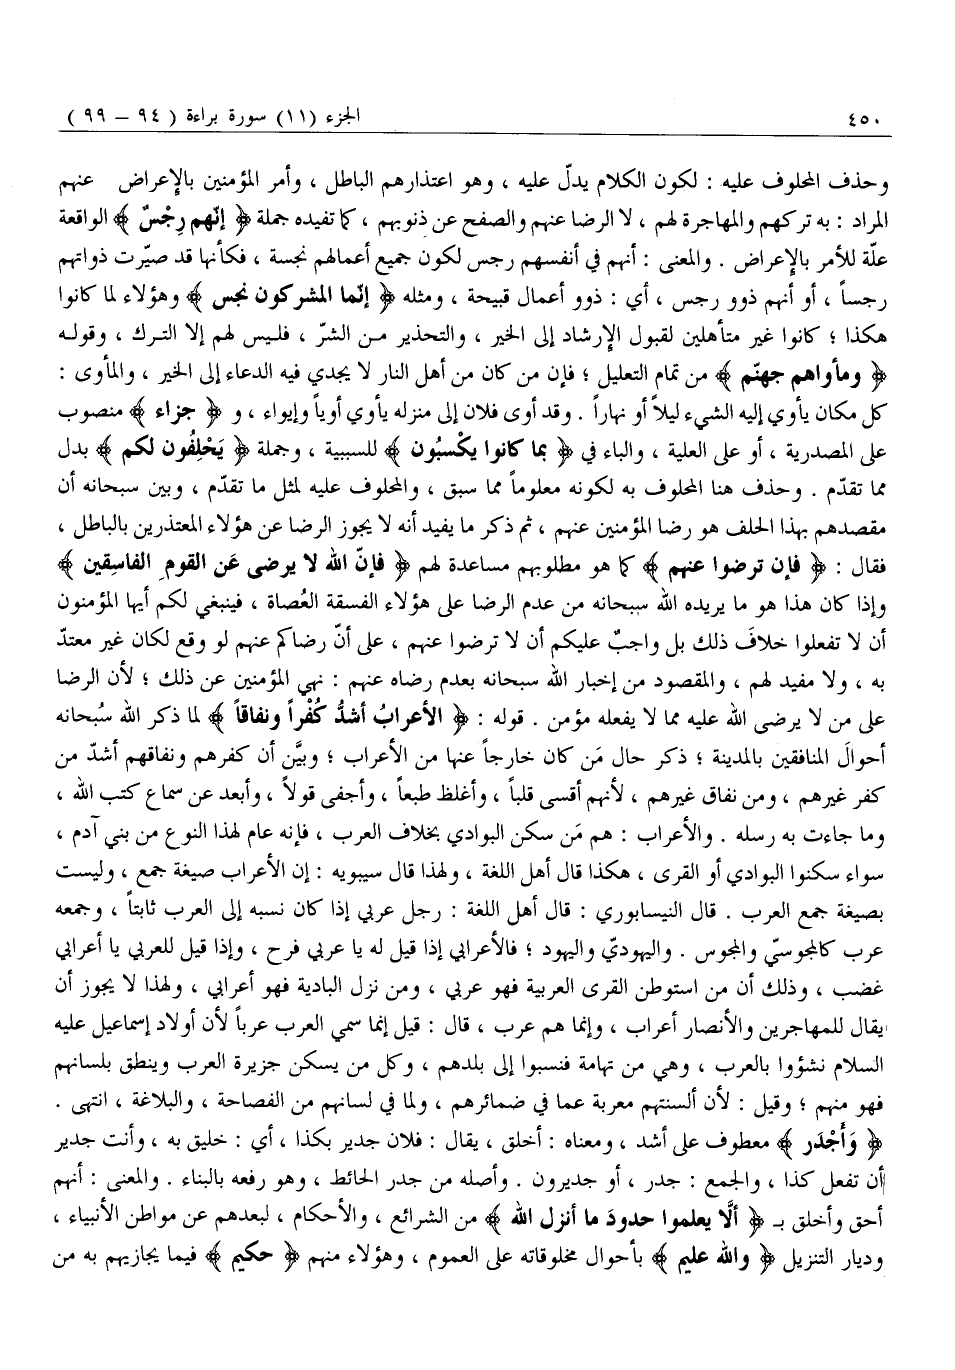 ٤٥٠ الجزء (١١) سورة براءة ( ٩٤ – ٩٩ )
وحذف المحلوف عليه : لكون الكلام يدلّ عليه ، وهو اعتذارهم الباطل ، وأمر المؤمنين بالإعراض عنهم
المراد : به تركهم والمهاجرة لهم ، لا الرضا عنهم والصفح عن ذنوبهم ، كما تفيده جملة ﴿ إنّهم رِجْسٌ ﴾ الواقعة
علّة للأمر بالإعراض . والمعنى : أنهم في أنفسهم رجس لكون جميع أعمالهم نجسة ، فكأنها قد صيّرت ذواتهم
رجساً ، أو أنهم ذوو رجس ، أي : ذوو أعمال قبيحة ، ومثله ﴿ إنّما المشركون نجس ﴾ وهؤلاء لما كانوا
هكذا ؛ كانوا غير متأهلين لقبول الإرشاد إلى الخير ، والتحذير من الشرّ ، فليس لهم إلا الترك ، وقوله
﴿ ومأواهم جهنّم ﴾ من تمام التعليل ؛ فإن من كان من أهل النار لا يجدي فيه الدعاء إلى الخير ، والمأوى :
كل مكان يأوي إليه الشيء ليلاً أو نهاراً . وقد أوى فلان إلى منزله يأوي أوياً وإيواء ، و ﴿ جزاء ﴾ منصوب
على المصدرية ، أو على العلية ، والباء في ﴿ بما كانوا يكْسبُون ﴾ للسببية ، وجملة ﴿ يَحْلِفُون لكم ﴾ بدل
مما تقدّم . وحذف هنا المحلوف به لكونه معلوماً مما سبق ، والمحلوف عليه لمثل ما تقدّم ، وبين سبحانه أن
مقصدهم بهذا الحلف هو رضا المؤمنين عنهم ، ثم ذكر ما يفيد أنه لا يجوز الرضا عن هؤلاء المعتذرين بالباطل ،
فقال : ﴿ فإن ترضوا عنهم ﴾ كما هو مطلوبهم مساعدة لهم ﴿ فإنّ الله لا يرضى عَن القومِ الفاسِقين ﴾
وإذا كان هذا هو ما يريده الله سبحانه من عدم الرضا على هؤلاء الفسقة العُصاة ، فينبغي لكم أيها المؤمنون
أن لا تفعلوا خلافَ ذلك بل واجبٌ عليكم أن لا ترضوا عنهم ، على أنّ رضاكم عنهم لو وقع لكان غير معتدّ
به ، ولا مفيد لهم ، والمقصود من إخبار الله سبحانه بعدم رضاه عنهم : نهي المؤمنين عن ذلك ؛ لأن الرضا
على من لا يرضى الله عليه مما لا يفعله مؤمن . قوله : ﴿ الأعرابُ أشدُّ كُفْراً ونفاقاً ﴾ لما ذكر الله سُبحانه
أحوالَ المنافقين بالمدينة ؛ ذكر حال مَن كان خارجاً عنها من الأعراب ؛ وبيَّن أن كفرهم ونفاقهم أشدّ من
كفر غيرهم ، ومن نفاق غيرهم ، لأنهم أقسى قلباً ، وأغلظ طبعاً ، وأجفى قولاً ، وأبعد عن سماع كتب الله ،
وما جاءت به رسله . والأعراب : هم مَن سكن البوادي بخلاف العرب ، فإنه عام لهذا النوع من بني آدم ،
سواء سكنوا البوادي أو القرى ، هكذا قال أهل اللغة ، ولهذا قال سيبويه : إن الأعراب صيغة جمع ، وليست
بصيغة جمع العرب . قال النيسابوري : قال أهل اللغة : رجل عربي إذا كان نسبه إلى العرب ثابتاً ، وجمعه
عرب كالمجوسيّ والمجوس . واليهوديّ واليهود ؛ فالأعرابي إذا قيل له يا عربي فرح ، وإذا قيل للعربي يا أعرابي
غضب ، وذلك أن من استوطن القرى العربية فهو عربي ، ومن نزل البادية فهو أعرابي ، ولهذا لا يجوز أن
يقال للمهاجرين والأنصار أعراب ، وإنما هم عرب ، قال : قيل إنما سمي العرب عرباً لأن أولاد إسماعيل عليه
السلام نشؤوا بالعرب ، وهي من تهامة فنسبوا إلى بلدهم ، وكل من يسكن جزيرة العرب وينطق بلسانهم
فهو منهم ؛ وقيل : لأن ألسنتهم معربة عما في ضمائرهم ، ولما في لسانهم من الفصاحة ، والبلاغة ، انتهى .
﴿ وَأَجْدَر ﴾ معطوف على أشد ، ومعناه : أخلق ، يقال : فلان جدير بكذا ، أي : خليق به ، وأنت جدير
أن تفعل كذا ، والجمع : جدر ، أو جديرون . وأصله من جدر الحائط ، وهو رفعه بالبناء . والمعنى : أنهم
أحق وأخلق بـ ﴿ ألَّا يعلموا حدودَ ما أنزل الله ﴾ من الشرائع ، والأحكام ، لبعدهم عن مواطن الأنبياء ،
وديار التنزيل ﴿ والله عليم ﴾ بأحوال مخلوقاته على العموم ، وهؤلاء منهم ﴿ حكيم ﴾ فيما يجازيهم به من